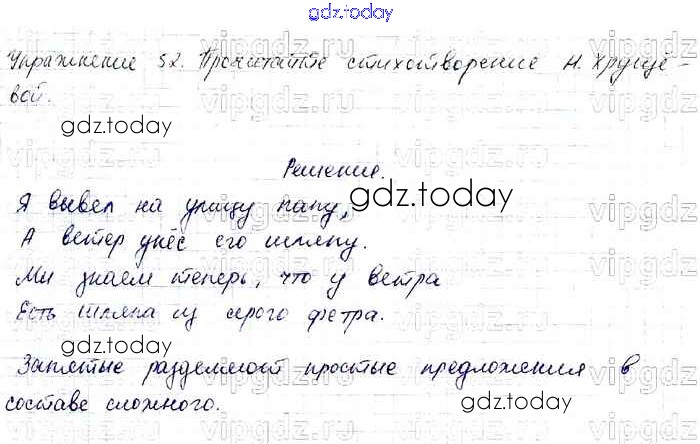 gdz.today
Упражнение 52. Прочитайте стихотворение Н. Хруще-
вой.
gdz.today
Решение.
Я вывел на улицу папу,
gdz.today
А ветер унёс его шляпу.
Мы знаем теперь, что у ветра
Есть шляпа из серого фетра.
gdz.today
Запятые разделяют простые предложения в
составе сложного.
gdz.today
vipgdz.ru